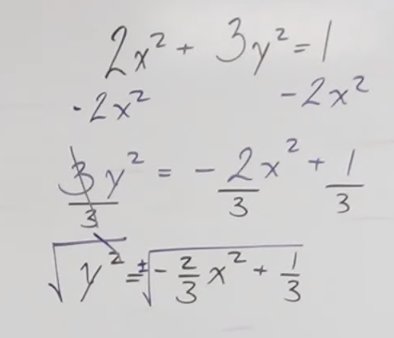 2x² + 3y² = 1
-2x² -2x²
3y²/3 = -2/3 x² + 1/3
√y² = ±√(-2/3 x² + 1/3)